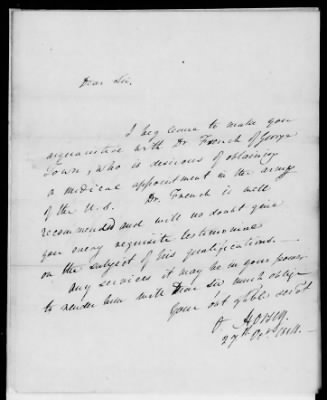 Dear Sir.
I beg leave to make you
acquainted with Dr French of George
Town, who is desirous of obtaining
a medical appointment in the army
of the U.S. Dr. French is well
recommended and will no doubt give
you every requisite testimonial
on the subject of his qualifications.—
Any services it may be in your power
to render him will Dear Sir much oblige
Your obt & hble servt
27th